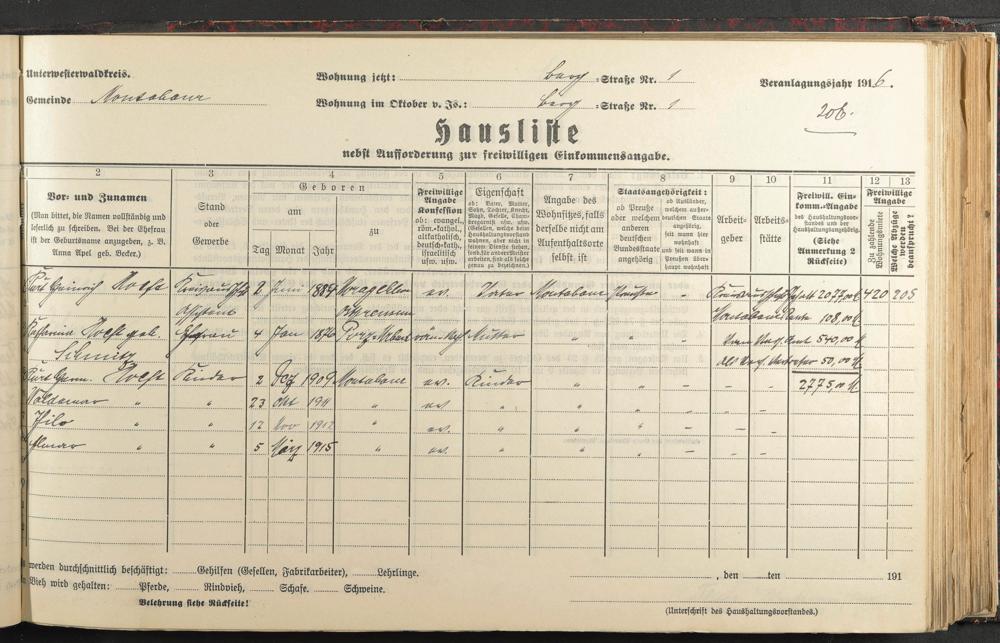 Unterwesterwaldkreis.
Wohnung jetzt: Berg =Straße Nr. 1
Veranlagungsjahr 1916.
Gemeinde Montabaur
Wohnung im Oktober v. Js.: Berg =Straße Nr. 1
206.
Hausliste
nebst Aufforderung zur freiwilligen Einkommensangabe.
2 3 4 5 6 7 8 9 10 11 12 13
Vor- und Zunamen
(Man bittet, die Namen vollständig und
leserlich zu schreiben. Bei der Ehefrau
ist der Geburtsname anzugeben, z. B.
Anna Apel geb. Becker.)
Stand
oder
Gewerbe
Geboren
am
Tag Monat Jahr
zu
Freiwillige
Angabe
Konfession
ob: evangel.,
röm.-kathol.,
altkatholisch,
deutsch-kath.,
israelitisch
usw. usw.
Eigenschaft
ob: Vater, Mutter,
Sohn, Tochter, Knecht,
Magd, Geselle, Cham-
bregarnist usw. usw.
(Gesellen, welche beim
Haushaltungsvorstand
wohnen, aber nicht in
seinem Dienste stehen,
sond. für andere Meister
arbeiten, sind als solche
genau zu bezeichnen).
Angabe des
Wohnsitzes, falls
derselbe nicht am
Aufenthaltsorte
selbst ist
Staatsangehörigkeit:
ob Preuße
oder welchem
anderen
deutschen
Bundesstaate
angehörig
ob Ausländer,
welchem außer-
deutschen Staate
angehörig,
seit wann hier
wohnhaft
und seit wann in
Preußen über-
haupt wohnhaft
Arbeit-
geber
Arbeits-
stätte
Freiwill. Ein-
komm.-Angabe
des Haushaltungsvor-
standes und der
Haushaltungsangehörig.
(Siehe
Anmerkung 2
Rückseite)
Freiwillige
Angabe
Zu zahlende
Wohnungsmiete
Welche Abzüge
werden
beansprucht?
Kurt Heinrich Holst 2 Juni ev. Vater Montabaur Preußen - 2077,00 M 420 205
Assistent Montabaur Rente 108,00 M
Katharina Holst geb. Ehefrau 4 Jan röm. kath. Mutter " " - 540,00 M
Schmitz 50,00 M
Kurt Herm. Holst Kinder 2 Dez 1909 Montabaur ev. Kinder " " - - - 2775,00 M
Waldemar " " 23 Okt 1911 " ev. " " " - - -
Thilo " " 12 Nov 1912 " ev. " " " - - -
Elmar " " 5 März 1915 " ev. " " " - - -
werden durchschnittlich beschäftigt: Gehilfen (Gesellen, Fabrikarbeiter), Lehrlinge.
Vieh wird gehalten: Pferde, Rindvieh, Schafe. Schweine.
, den ten 191
Belehrung siehe Rückseite!
(Unterschrift des Haushaltungsvorstandes.)